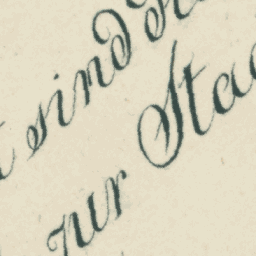 sind
zur Sta